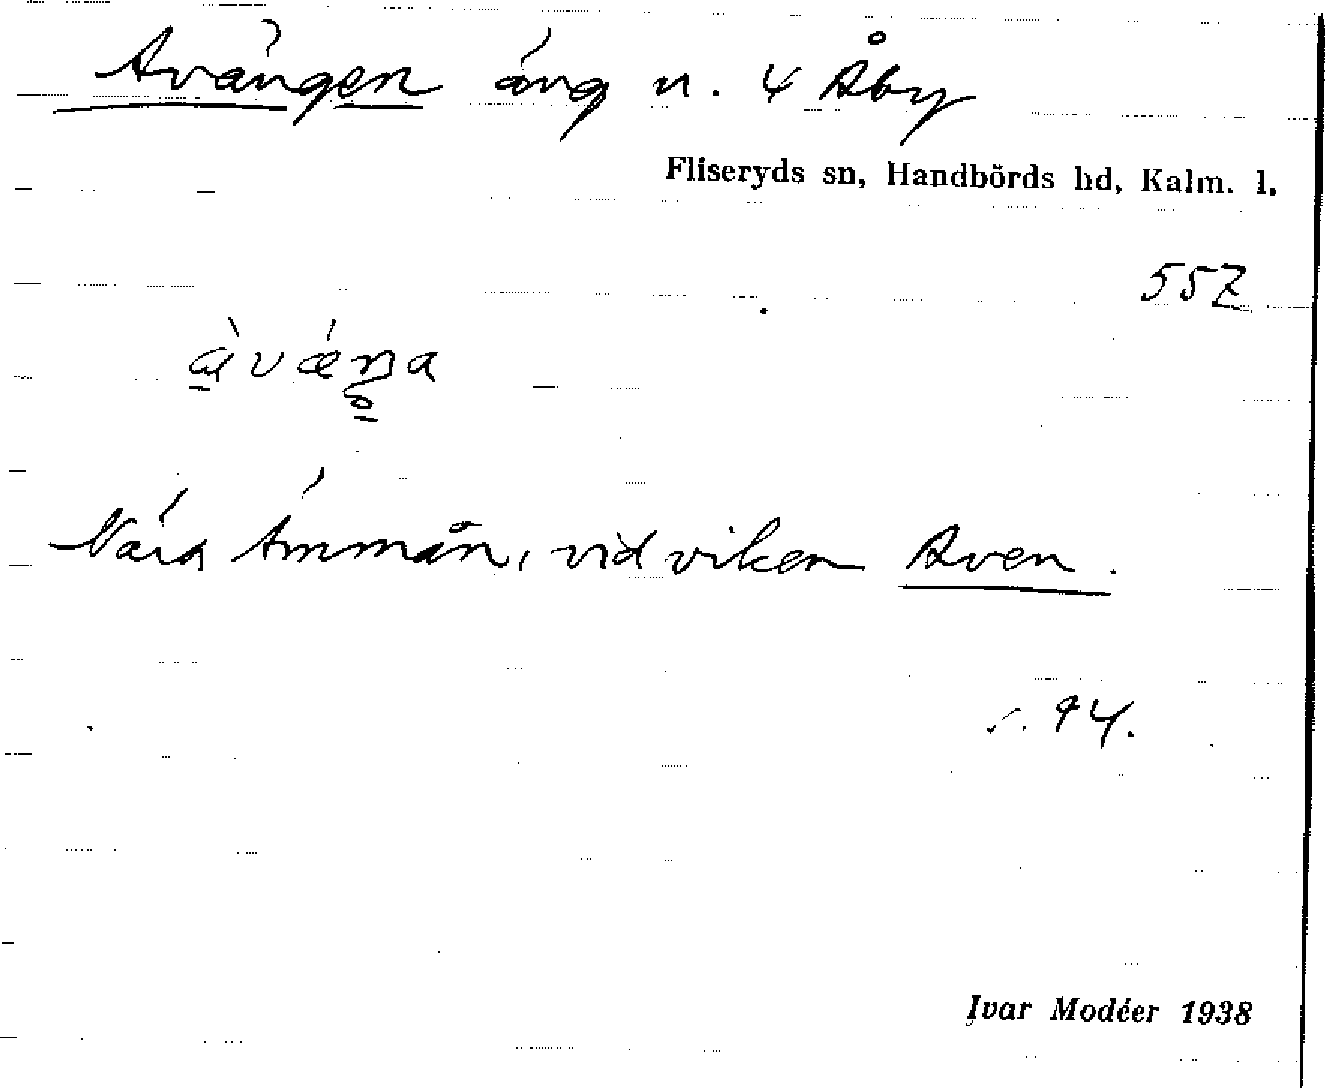 Avängen äng n. 4 Åby
Fliseryds sn, Handbörds hd, Kalm. l.
552
àvǽŋa
Nära Ämmån, vid viken Aven.
s. 94.
Ivar Modéer 1938